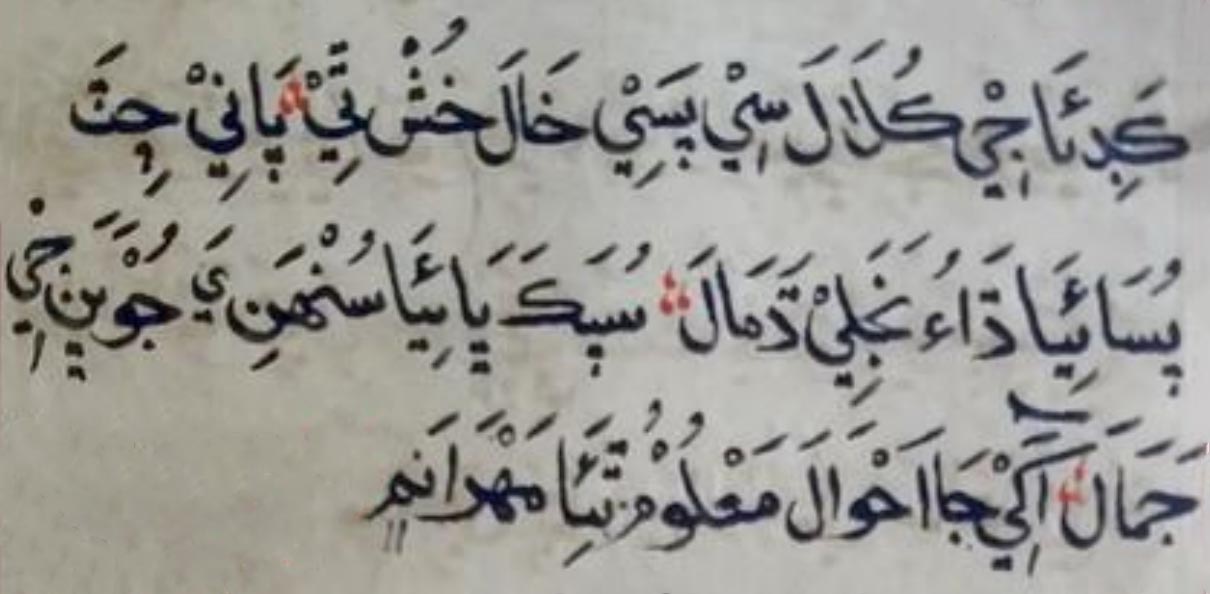 كَدِئَا جِيْ كُلَالَ سِيْ پَسِيْ خَالَ خُشُ تِيْ پَانِيْ جِتَ
پُسَائِيَا دَاءُ نَجَلِيْ دَمَالَ سُپَكَ پَائِيَا سُنْهَنِ يَ جُوْپَنَ جِيْ
جَمَالَ آكِيْ جَا اَحْوَالَ مَعْلُوْمُ تِئَا مَهْرَانَمِ